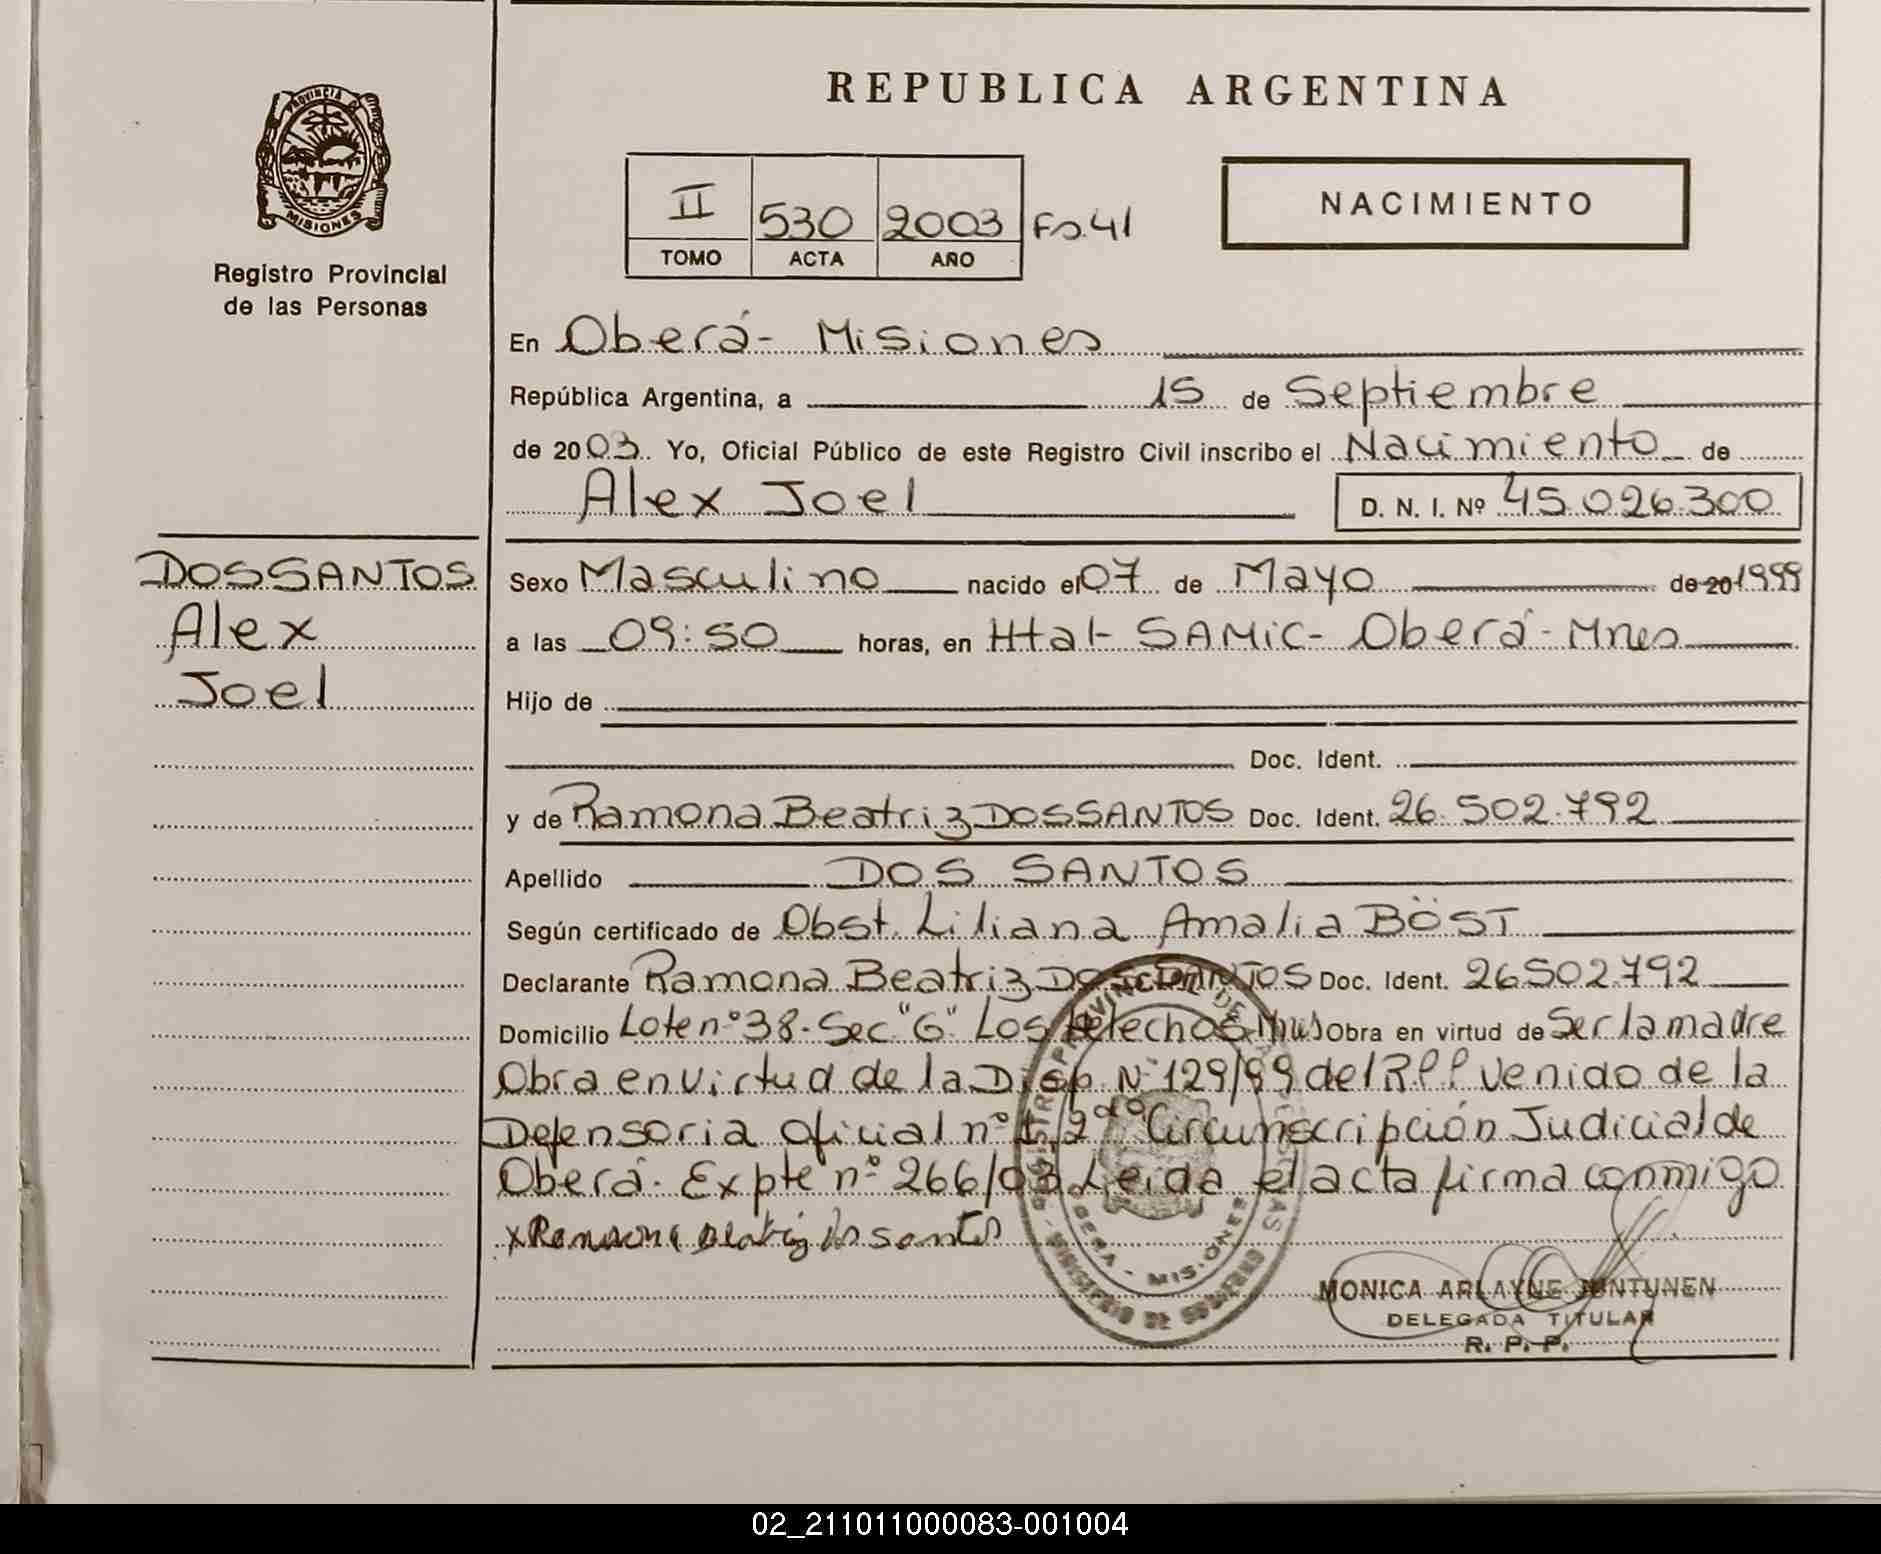 REPUBLICA ARGENTINA
PROVINCIA D
MISIONES
Registro Provincial
de las Personas
II 530 2003 Fo.41
TOMO ACTA AÑO
NACIMIENTO
En Oberá- Misiones
República Argentina, a 15 de Septiembre
de 2003. Yo, Oficial Público de este Registro Civil inscribo el Nacimiento de
Alex Joel D. N. I. Nº 45.026.300
DOSSANTOS
Alex
Joel
Sexo Masculino nacido el 07 de Mayo de 20 1999
a las 09:50 horas, en Htal- SAMIC- Oberá- Mnes
Hijo de
Doc. Ident.
y de Ramona Beatriz DOSSANTOS Doc. Ident. 26.502.792
Apellido DOS SANTOS
Según certificado de Obst. Liliana Amalia BÖST
Declarante Ramona Beatriz DOS SANTOS Doc. Ident. 26502.792
Domicilio Lote nº38-Sec "G" Los Helechos Mnes Obra en virtud de Ser la madre
Obra en virtud de la Disp Nº129/99 del R.P.P venido de la
Defensoria oficial nº 1, 2da Circunscripción Judicial de
Oberá- Expte nº 266/03 Leida el acta firma conmigo
x Ramona Beatriz Dos santos
REGISTRO PROVINCIAL DE LAS PERSONAS
MINISTERIO DE GOBIERNO
OBERA - MISIONES
MONICA ARLAYNE JUNTUNEN
DELEGADA TITULAR
R. P. P.
02_211011000083-001004